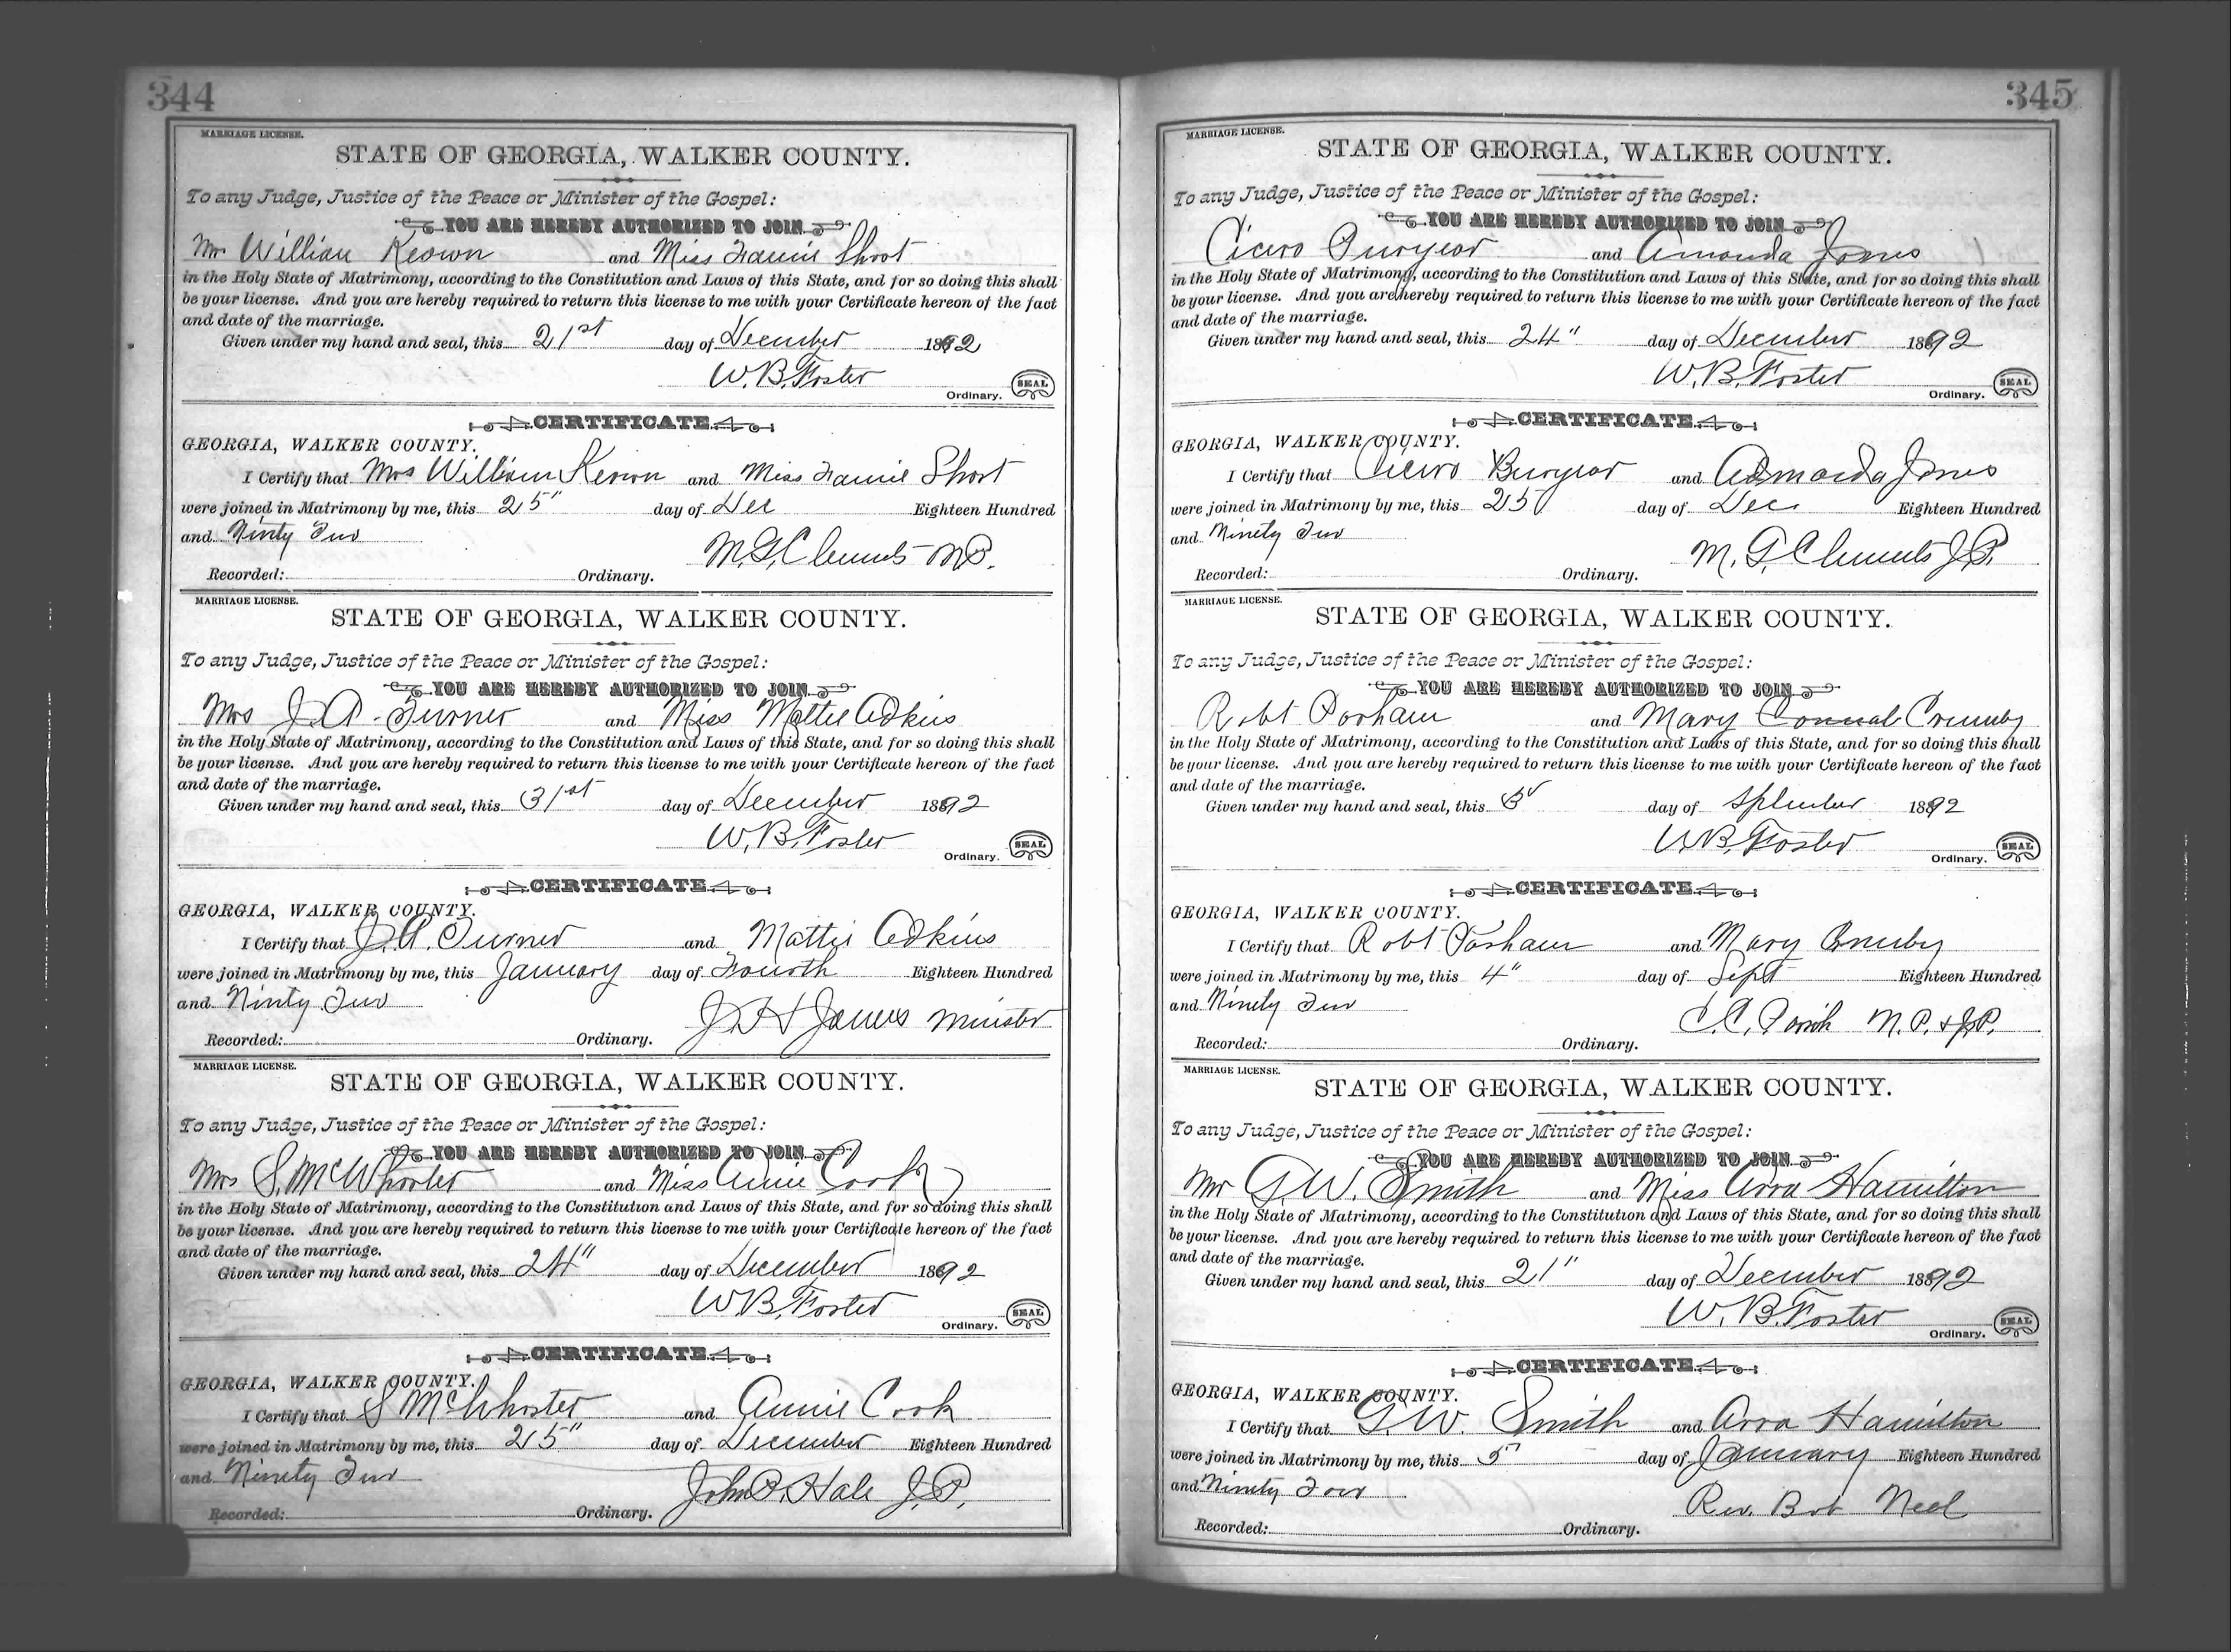 344
MARRIAGE LICENSE.
STATE OF GEORGIA, WALKER COUNTY.
To any Judge, Justice of the Peace or Minister of the Gospel:
YOU ARE HEREBY AUTHORIZED TO JOIN
Mr William Keown and Miss Fannie Short
in the Holy State of Matrimony, according to the Constitution and Laws of this State, and for so doing this shall
be your license. And you are hereby required to return this license to me with your Certificate hereon of the fact
and date of the marriage.
Given under my hand and seal, this 21st day of December 1892
W. B. Foster
Ordinary. SEAL
CERTIFICATE
GEORGIA, WALKER COUNTY.
I Certify that Mrs William Keown and Miss Fannie Short
were joined in Matrimony by me, this 25" day of Dec Eighteen Hundred
and Ninty Two
M. G. Clements NP.
Recorded: Ordinary.
MARRIAGE LICENSE.
STATE OF GEORGIA, WALKER COUNTY.
To any Judge, Justice of the Peace or Minister of the Gospel:
YOU ARE HEREBY AUTHORIZED TO JOIN
Mrs J. A. Turner and Miss Mattie Adkins
in the Holy State of Matrimony, according to the Constitution and Laws of this State, and for so doing this shall
be your license. And you are hereby required to return this license to me with your Certificate hereon of the fact
and date of the marriage.
Given under my hand and seal, this 31st day of December 1892
W. B. Foster
Ordinary. SEAL
CERTIFICATE
GEORGIA, WALKER COUNTY.
I Certify that J. A. Turner and Mattie Adkins
were joined in Matrimony by me, this January day of Fourth Eighteen Hundred
and Ninty Two
J H James Minister
Recorded: Ordinary.
MARRIAGE LICENSE.
STATE OF GEORGIA, WALKER COUNTY.
To any Judge, Justice of the Peace or Minister of the Gospel:
YOU ARE HEREBY AUTHORIZED TO JOIN
Mrs S. McWhorter and Miss Annie Cook
in the Holy State of Matrimony, according to the Constitution and Laws of this State, and for so doing this shall
be your license. And you are hereby required to return this license to me with your Certificate hereon of the fact
and date of the marriage.
Given under my hand and seal, this 24" day of December 1892
W B. Foster
Ordinary. SEAL
CERTIFICATE
GEORGIA, WALKER COUNTY.
I Certify that S McWhorter and Annie Cook
were joined in Matrimony by me, this 25" day of December Eighteen Hundred
and Ninety Two
John P. Hale J. P.
Recorded: Ordinary.
345
MARRIAGE LICENSE.
STATE OF GEORGIA, WALKER COUNTY.
To any Judge, Justice of the Peace or Minister of the Gospel:
YOU ARE HEREBY AUTHORIZED TO JOIN
Cicero Puryear and Amanda Jones
in the Holy State of Matrimony, according to the Constitution and Laws of this State, and for so doing this shall
be your license. And you are hereby required to return this license to me with your Certificate hereon of the fact
and date of the marriage.
Given under my hand and seal, this 24" day of December 1892
W. B. Foster
Ordinary. SEAL
CERTIFICATE
GEORGIA, WALKER COUNTY.
I Certify that Cicero Buryear and Admanda Jones
were joined in Matrimony by me, this 25 day of Dec. Eighteen Hundred
and Ninety Two
M. G. Clements J. P.
Recorded: Ordinary.
MARRIAGE LICENSE.
STATE OF GEORGIA, WALKER COUNTY.
To any Judge, Justice of the Peace or Minister of the Gospel:
YOU ARE HEREBY AUTHORIZED TO JOIN
Robt Parham and Mary Crumby
in the Holy State of Matrimony, according to the Constitution and Laws of this State, and for so doing this shall
be your license. And you are hereby required to return this license to me with your Certificate hereon of the fact
and date of the marriage.
Given under my hand and seal, this day of September 1892
W. B. Foster
Ordinary. SEAL
CERTIFICATE
GEORGIA, WALKER COUNTY.
I Certify that Robt Parham and Mary Crumby
were joined in Matrimony by me, this 4" day of Sept Eighteen Hundred
and Ninety Two
C. C. Parish N. P. & J. P.
Recorded: Ordinary.
MARRIAGE LICENSE.
STATE OF GEORGIA, WALKER COUNTY.
To any Judge, Justice of the Peace or Minister of the Gospel:
YOU ARE HEREBY AUTHORIZED TO JOIN
Mr G. W. Smith and Miss Arra Hamilton
in the Holy State of Matrimony, according to the Constitution and Laws of this State, and for so doing this shall
be your license. And you are hereby required to return this license to me with your Certificate hereon of the fact
and date of the marriage.
Given under my hand and seal, this 21" day of December 1892
W. B. Foster
Ordinary. SEAL
CERTIFICATE
GEORGIA, WALKER COUNTY.
I Certify that G. W. Smith and Arra Hamilton
were joined in Matrimony by me, this 5" day of January Eighteen Hundred
and Ninety Two
Rev. Bob Neel
Recorded: Ordinary.